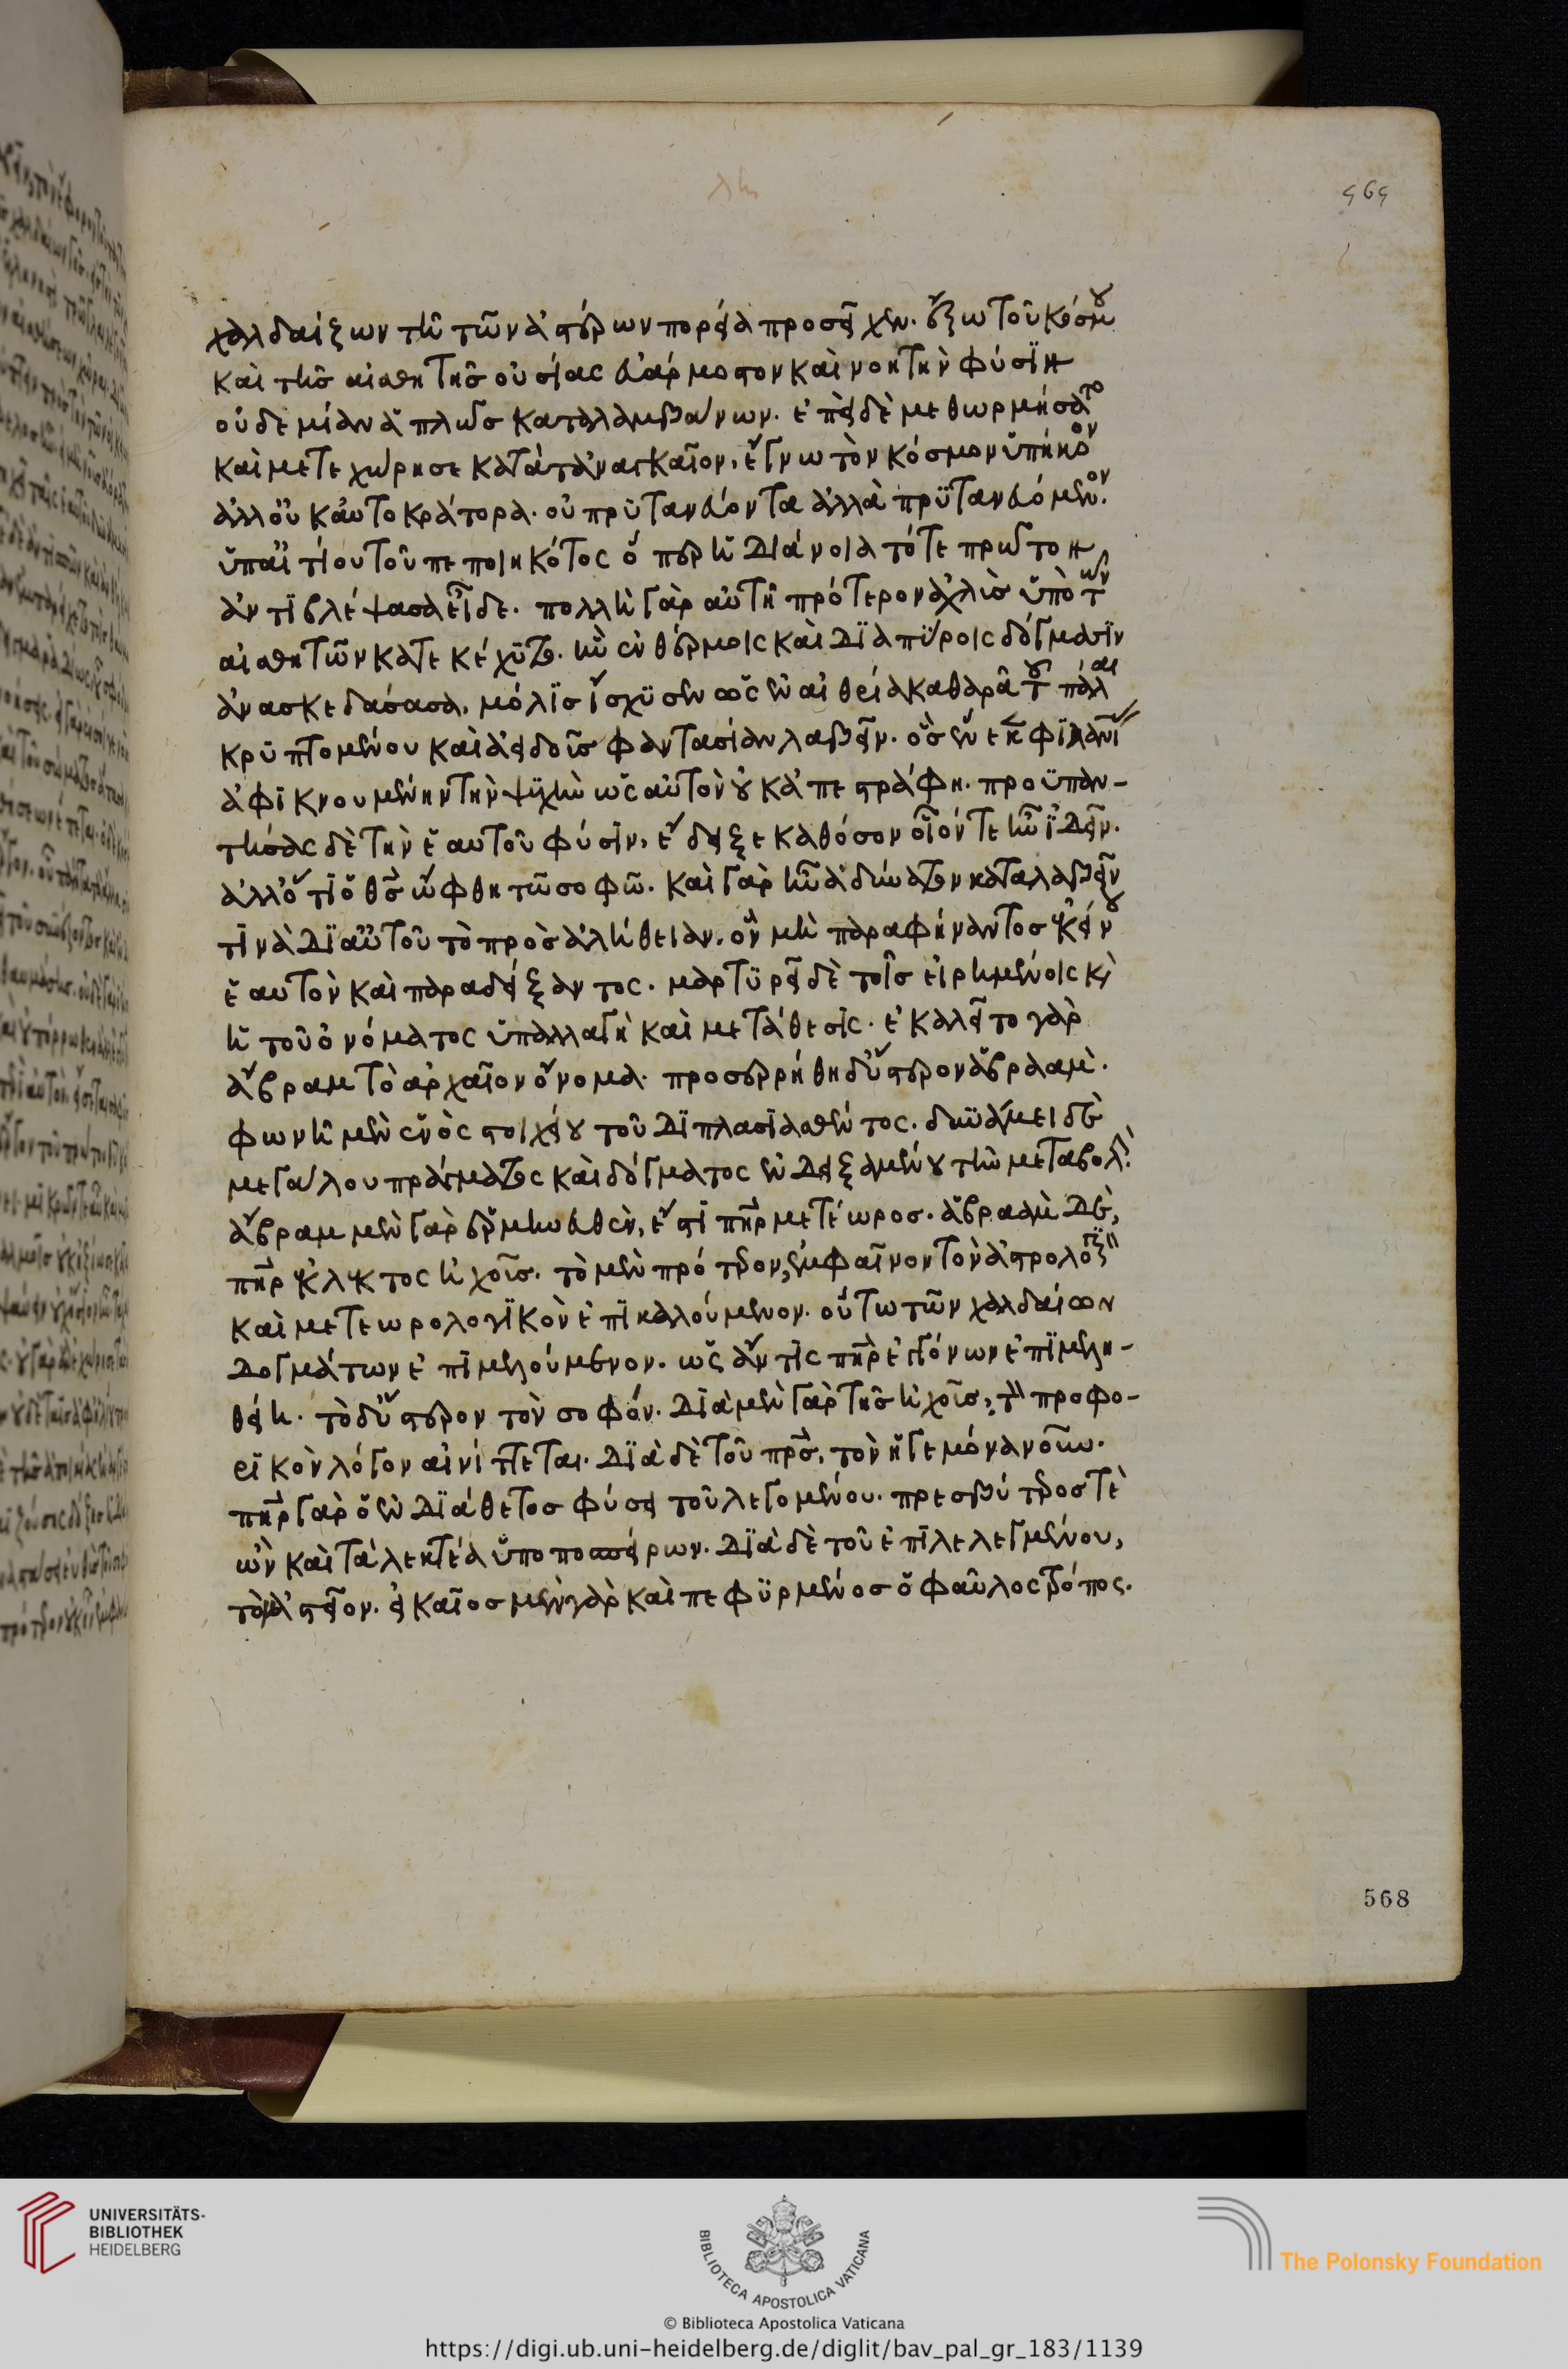 χαλδαίζων τῆ τῶν ἀστέρων πορεία προσεῖχεν. ἔξω τοῦ κόσμου
καὶ τῆς αἰσθητῆς οὐσίας εὐάρμοστον καὶ νοητὴν φύσϊν
οὐδεμίαν ἁπλῶς καταλαμβάνων. ἐπεὶ δὲ μεθωρμήσατο
καὶ μετεχώρησε κατὰ τἀναγκαῖον, ἔγνω τὸν κόσμον ὑπήκοον
ἀλλ' οὐκ αὐτοκράτορα. οὐ πρϋτανεύοντα ἀλλὰ πρϋτανευόμενον.
ὑπ' αἰτίου τοῦ πεποιηκότος ὅπερ ἡ διάνοια τότε πρῶτον
ἀντϊβλέψασα εἶδε. πολλὴ γὰρ αὐτῆ πρότερον ἀχλὺς ὑπὸ τῶν
αἰσθητῶν κατεκέχϋτο. ἣν ἐν θέρμοις καὶ δϊαπϋροις δόγμασϊν
ἀνασκεδάσασα, μόλϊς ἴσχϋσεν ὡς ἐν αἰθρία καθαρᾶ τοῦ πάλαι
κρϋπτομένου καὶ ἀειδοῦς φαντασίαν λαβεῖν. ὃς ἕνεκα φϊλανῖας
ἀφϊκνουμένην τὴν ψϋχὴν ὡς αὐτὸν οὐκ ἀπεστράφη. προϋπαν-
τήσας δὲ τὴν ἑαυτοῦ φύσϊν, ἔδειξε καθόσον οἷόν τε ἦν ἰδεῖν.
ἀλλ' ὅτϊ ὁ θς ὤφθη τῶ σοφῶ. καὶ γὰρ ἦν ἀδύνατον καταλαβεῖν
τϊνὰ δϊ αὑτοῦ τὸ πρὸς ἀλήθειαν. ὂν μὴ παραφήναντος ἐκείνου
ἑαυτὸν καὶ παραδείξαντος. μαρτϋρεῖ δὲ τοῖς εἰρημένοις καὶ
ἡ τοῦ ὀνόματος ὑπαλλαγὴ καὶ μετάθεσϊς. ἐκαλεῖτο γὰρ
ἄβραμ τὸ ἀρχαῖον ὄνομα. προσερρήθη δ' ὕστερον ἁβραάμ.
φωνῆ μὲν ἑνὸς στοιχείου τοῦ δϊπλασϊασθέντος. δυνάμει δὲ
μεγάλου πράγματος καὶ δόγματος ἐνδειξαμένου τὴν μεταβολήν.
ἄβραμ μὲν γὰρ ἑρμηνευθὲν, ἔστϊ πηρ μετέωρος. ἁβραὰμ δὲ,
πηρ ἐκλεκτὸς ἠχοῦς. τὸ μὲν πρότερον, ἐμφαῖνον τὸν ἀστρολογϊκὸν
καὶ μετεωρολογϊκὸν ἐπϊκαλούμενον. οὕτω τῶν χαλδαίων
δογμάτων ἐπϊμελούμενον. ὡς ἄν τϊς πηρ ἐγγόνων ἐπϊμελη-
θείη. τὸ δ' ὕστερον τὸν σοφόν. δϊὰ μὲν γὰρ τῆς ἠχοῦς, τὸν προφο-
ρϊκὸν λόγον αἰνίττεται. δϊὰ δὲ τοῦ πρς, τὸν ἡγεμόνα νοῦν.
πηρ γὰρ ὁ ἐνδϊάθετος φύσει τοῦ λεγομένου. πρεσβύτερός τε
ὢν καὶ τὰ λεκτέα ὑποποσπείρων. δϊὰ δὲ τοῦ ἐπϊλελεγμένου,
τὸν ἀστεῖον. εἰκαῖος μὲν γὰρ καὶ πεφϋρμένος ὁ φαῦλος τρόπος.
568
UNIVERSITÄTS-
BIBLIOTHEK
HEIDELBERG
BIBLIOTECA APOSTOLICA VATICANA
The Polonsky Foundation
© Biblioteca Apostolica Vaticana
https://digi.ub.uni-heidelberg.de/diglit/bav_pal_gr_183/1139